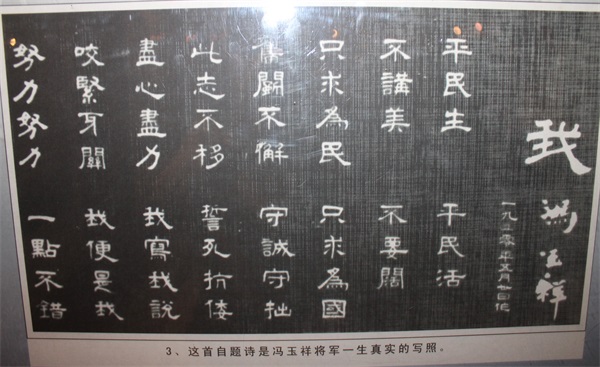 我
馮玉祥
平民生 平民活
不講美 不要闊
只求為民 只求為國
奮鬭不懈 守誠守拙
此志不移 誓死抗倭
盡心盡力 我寫我說
咬緊牙關 我便是我
努力努力 一點不錯
3、这首自题诗是冯玉祥将军一生真实的写照。